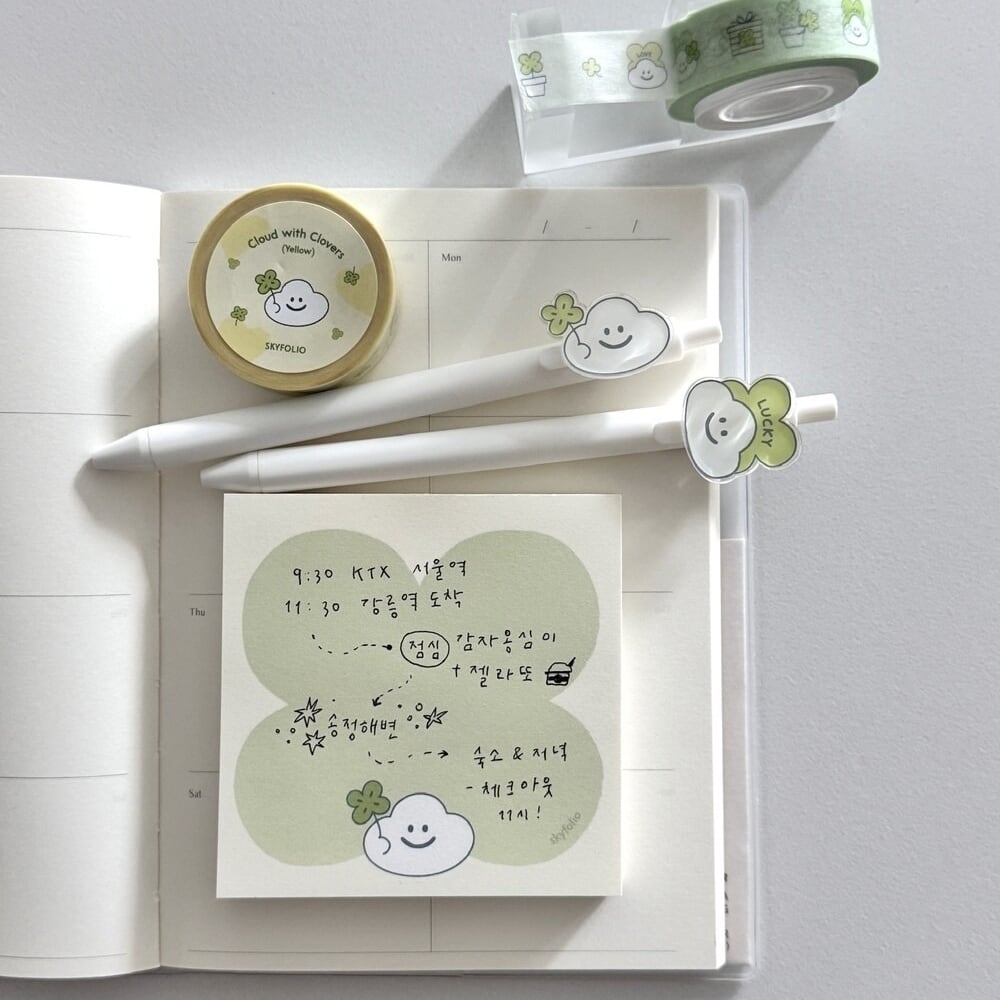 LOVE
/ - /
Cloud with Clovers
(Yellow)
SKYFOLIO
Mon
LUCKY
Thu
Sat
9:30 KTX 서울역
11:30 강릉역 도착
점심 감자옹심이
+ 젤라또
송정해변
숙소 & 저녁
- 체크아웃
11시!
skyfolio